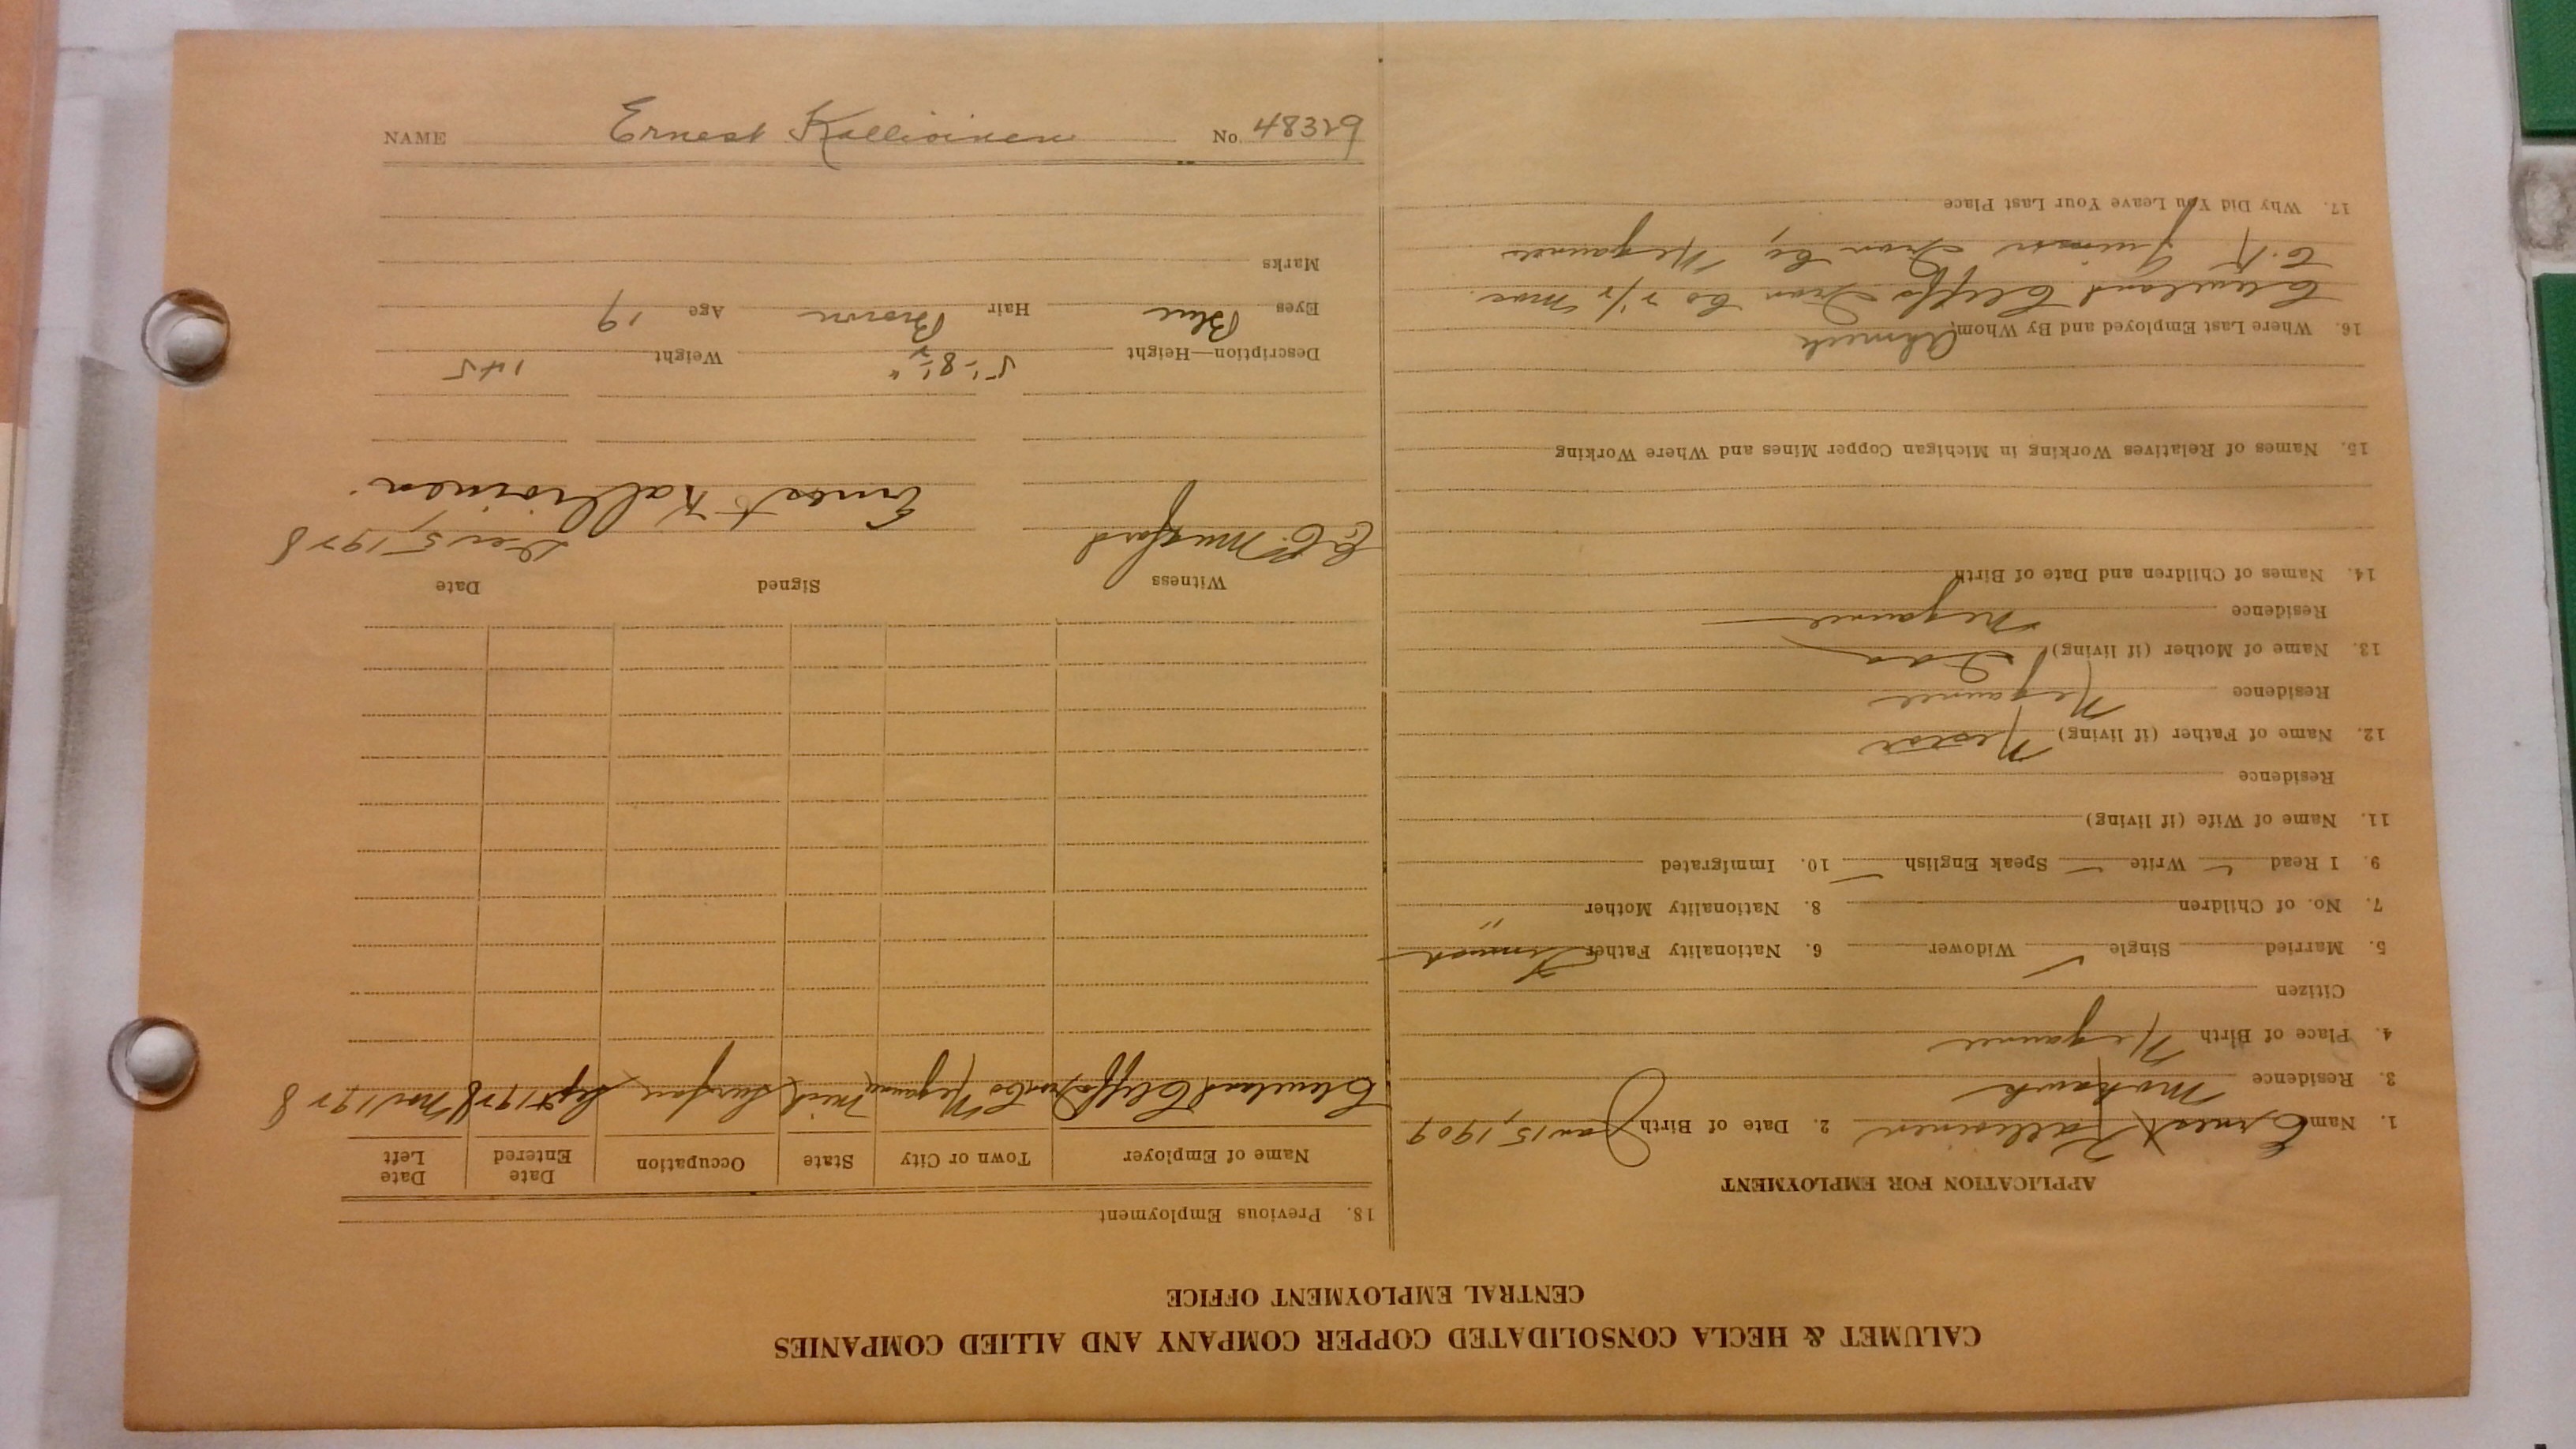 CALUMET & HECLA CONSOLIDATED COPPER COMPANY AND ALLIED COMPANIES
CENTRAL EMPLOYMENT OFFICE
APPLICATION FOR EMPLOYMENT
1. Name Ernest Kallioinen 2. Date of Birth Jan 15, 1909
3. Residence Mohawk
4. Place of Birth Negaunee
Citizen
5. Married Single ✓ Widower 6. Nationality Father Finnish
7. No. of Children 8. Nationality Mother "
9. I Read ✓ Write ✓ Speak English ✓ 10. Immigrated
11. Name of Wife (if living)
Residence
12. Name of Father (if living)
Residence Negaunee
13. Name of Mother (if living) Ida
Residence Negaunee
14. Names of Children and Date of Birth
15. Names of Relatives Working in Michigan Copper Mines and Where Working
16. Where Last Employed and By Whom Ahmeek
Cleveland Cliffs Iron Co 2 1/2 mos.
Iron Co, Negaunee
17. Why Did You Leave Your Last Place
18. Previous Employment
Name of Employer Town or City State Occupation Date Entered Date Left
Cleveland Cliffs Iron Co Negaunee Mich Surface Sept 1928 Nov 1928
Witness Signed Date
Mugford Dec 5, 1928
Ernest Kallioinen.
Description—Height 5'-8 1/2" Weight 145
Eyes Blue Hair Brown Age 19
Marks
NAME Ernest Kallioinen No. 48329